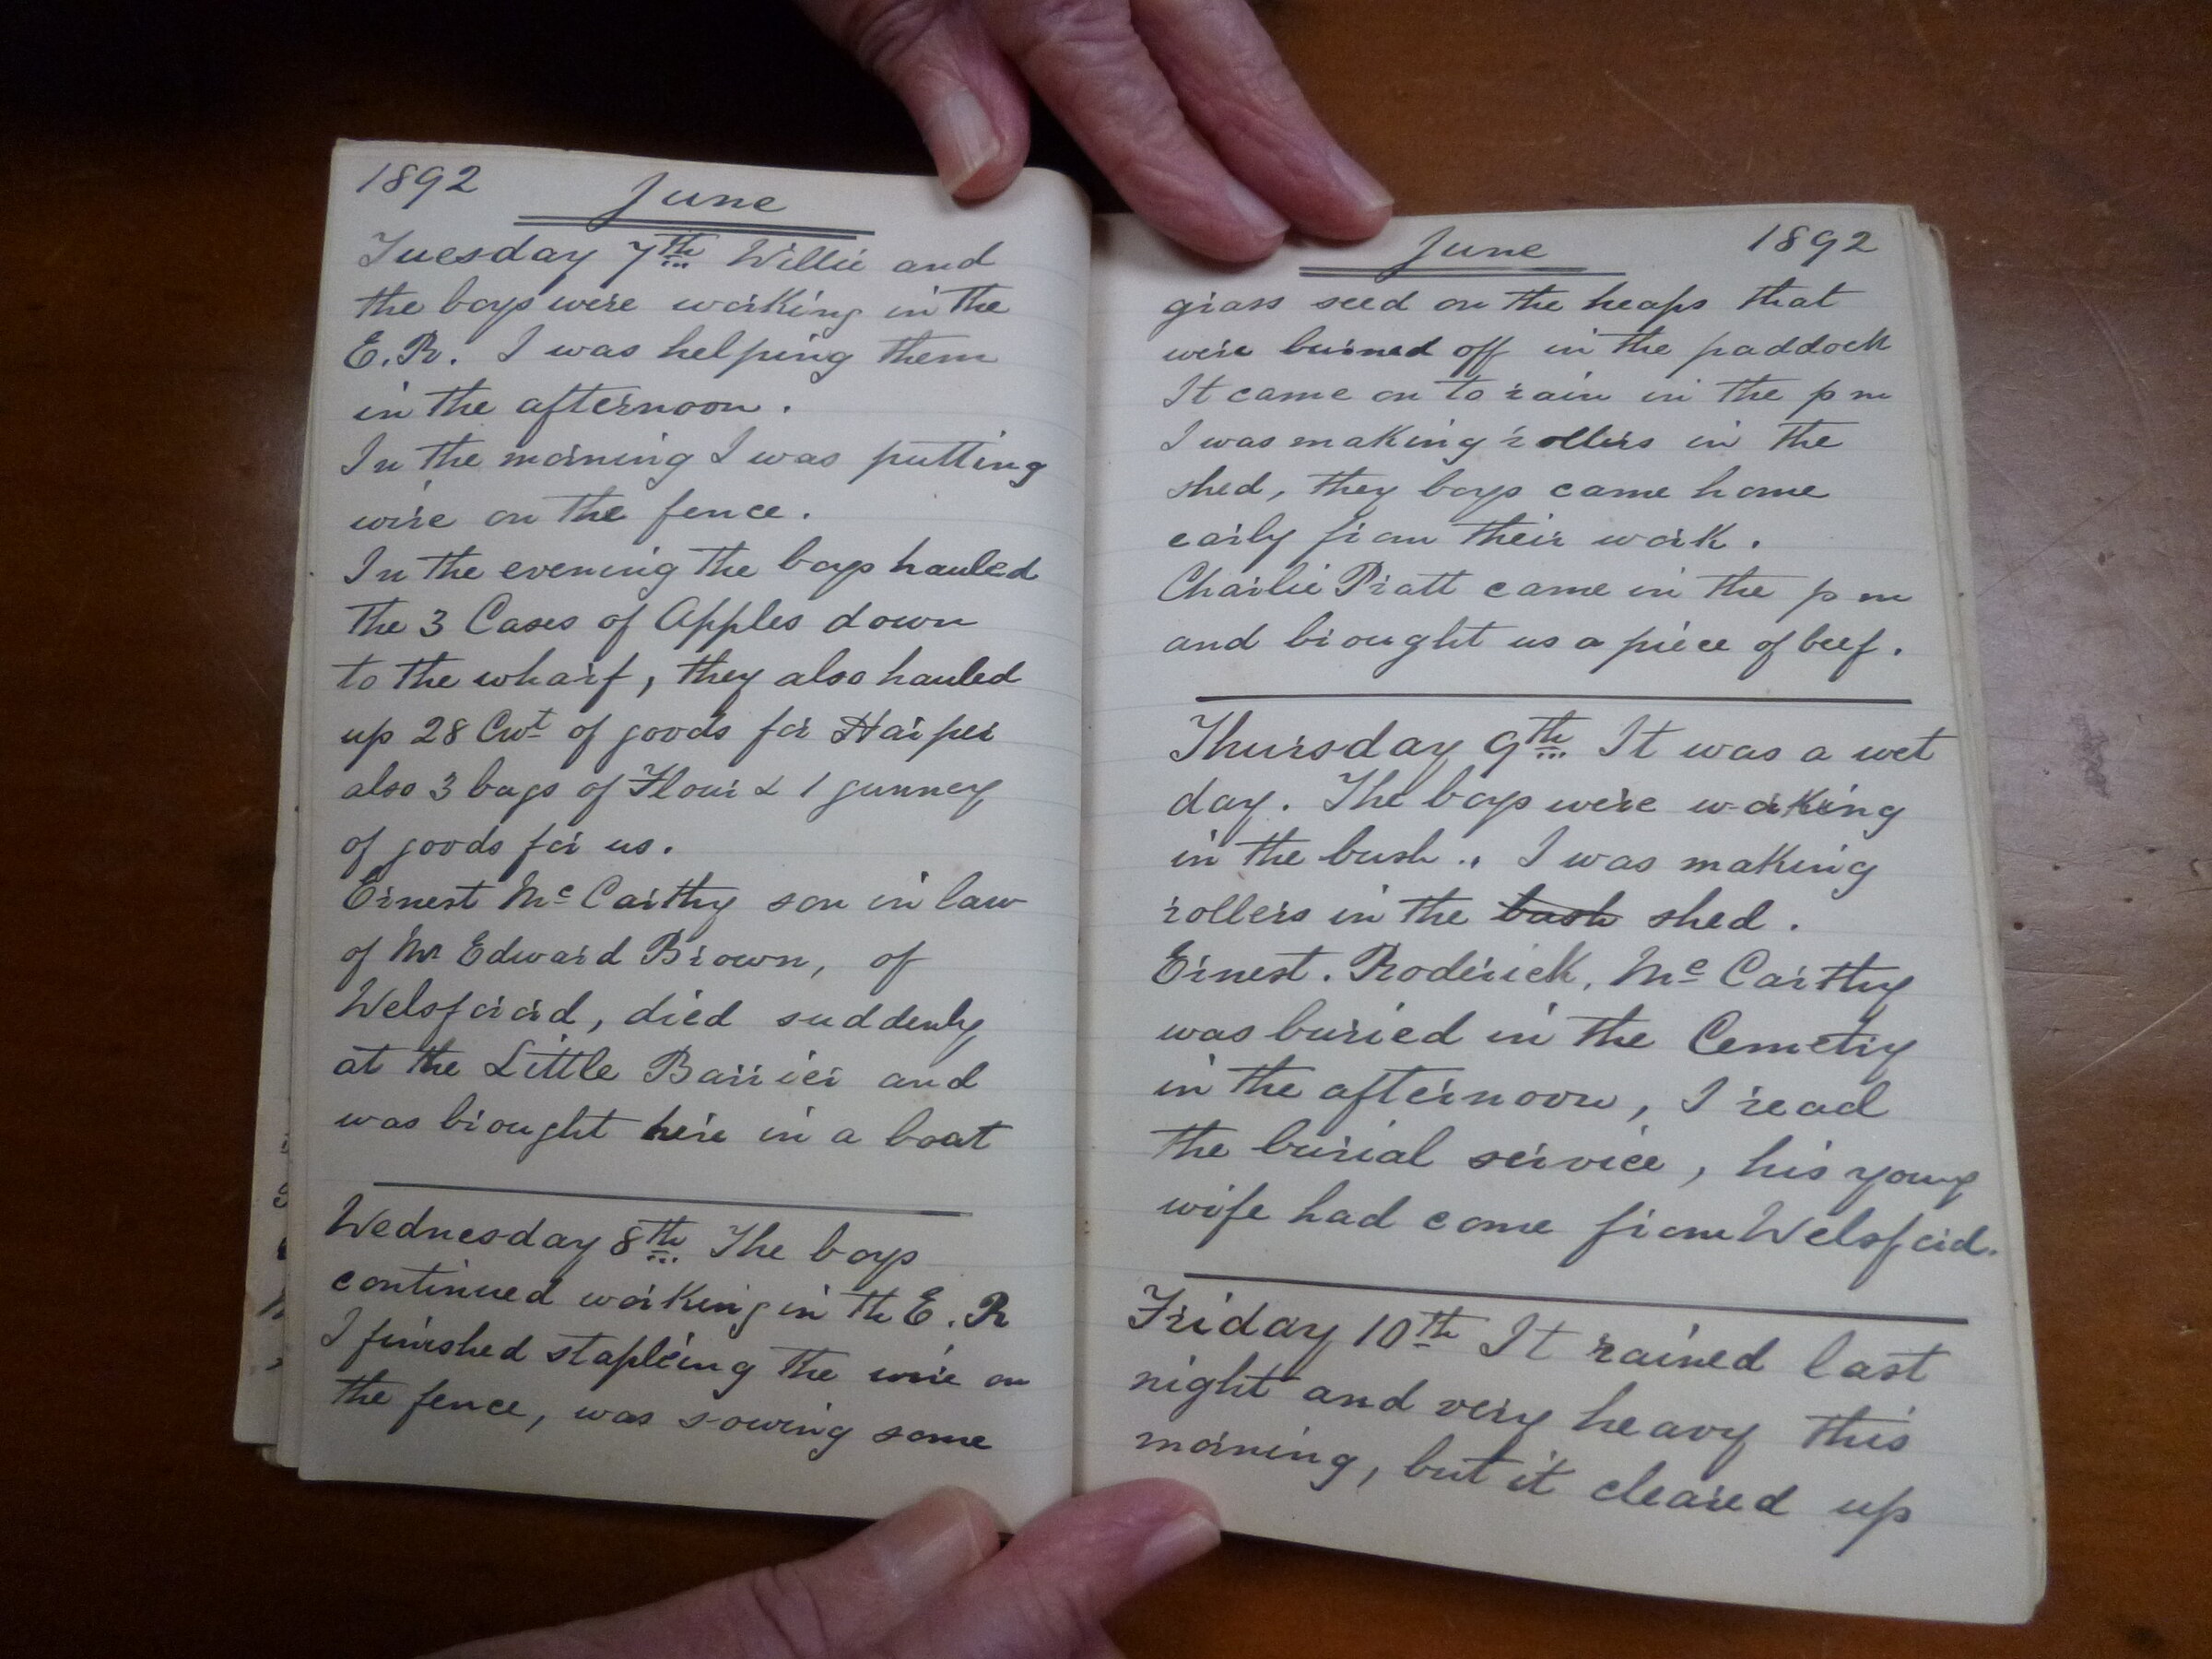 1892 June
Tuesday 7th Willie and
the boys were working in the
E.R. I was helping them
in the afternoon.
In the morning I was putting
wire on the fence.
In the evening the boys hauled
the 3 Cases of Apples down
to the wharf, they also hauled
up 28 Cwt of goods for Harper
also 3 bags of Flour & 1 gunney
of goods for us.
Ernest Mc Carthy son in law
of Mr Edward Brown, of
Welsford, died suddenly
at the Little Barrier and
was brought here in a boat
Wednesday 8th The boys
continued working in the E.R
I finished stapleing the wire on
the fence, was sowing some
June 1892
grass seed on the heaps that
were burned off in the paddock
It came on to rain in the p m
I was making rollers in the
shed, they boys came home
early from their work.
Charlie Pratt came in the p m
and brought us a piece of beef.
Thursday 9th It was a wet
day. The boys were working
in the bush.. I was making
rollers in the bush shed.
Ernest. Roderick, Mc Carthy
was buried in the Cemetry
in the afternoon, I read
the burial service, his young
wife had come from Welsford.
Friday 10th It rained last
night and very heavy this
morning, but it cleared up